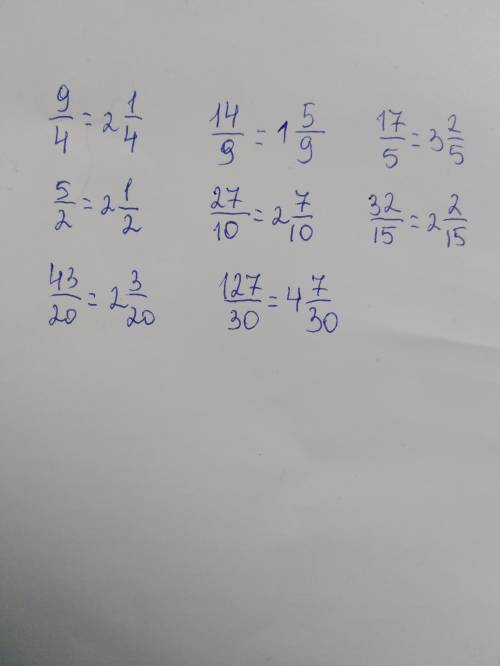 9/4 = 2 1/4   14/9 = 1 5/9   17/5 = 3 2/5
5/2 = 2 1/2   27/10 = 2 7/10   32/15 = 2 2/15
43/20 = 2 3/20   127/30 = 4 7/30